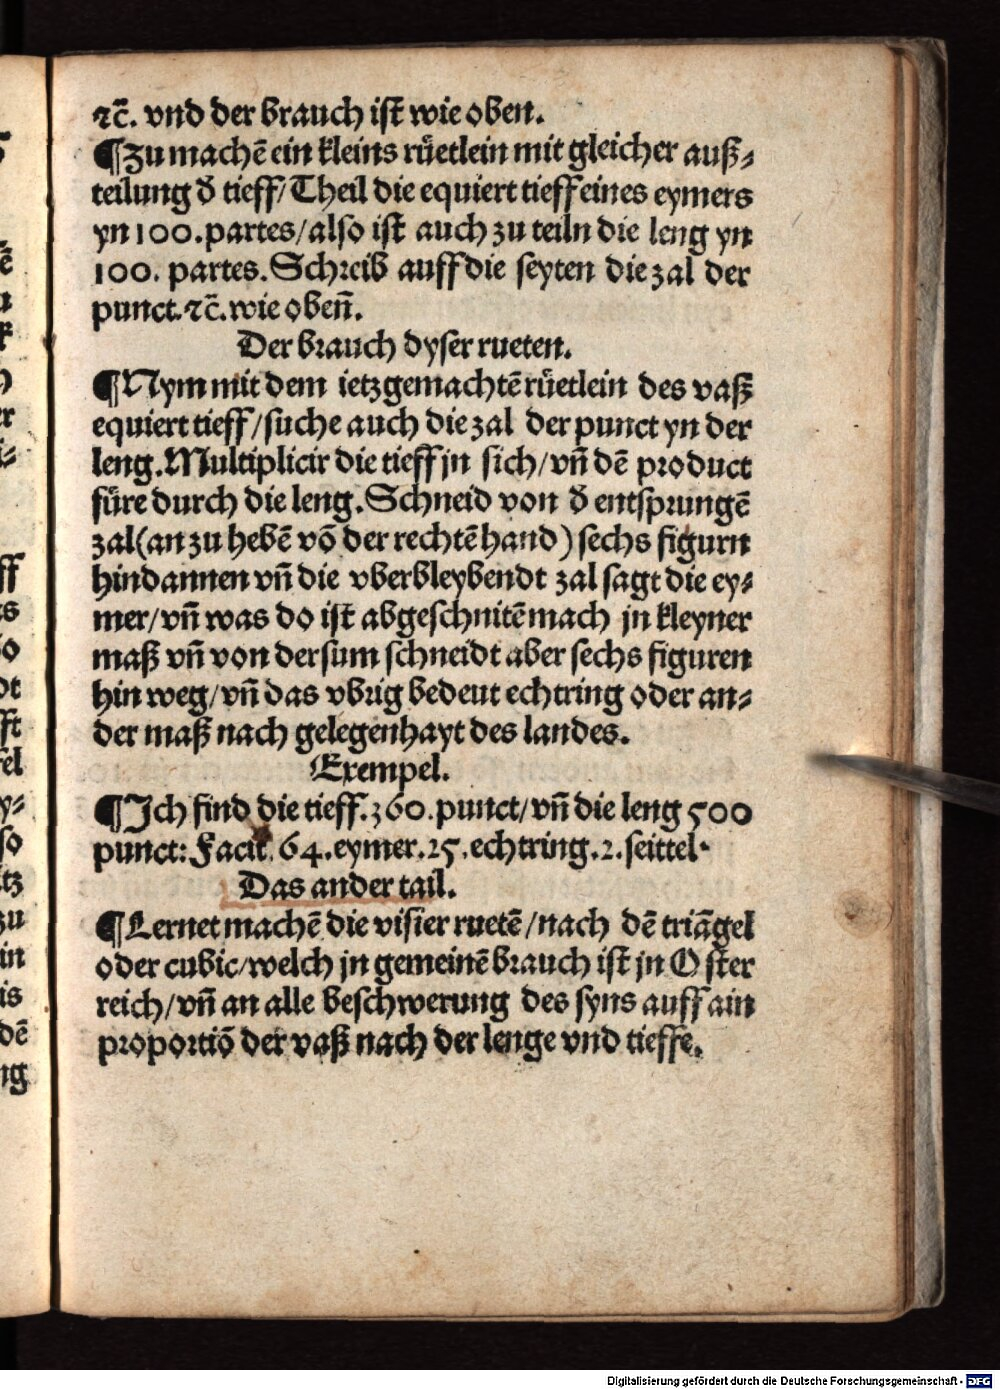 ⁊c̄. vnd der brauch ist wie oben.
¶Zu machē ein kleins rüetlein mit gleicher auß⸗
teilung đ tieff/Theil die equiert tieff eines eymers
yn 100.partes/also ist auch zu teiln die leng yn
100. partes.Schreib auff die seyten die zal der
punct.⁊c̄.wie obeñ.
Der brauch dyser rueten.
¶Nym mit dem ietzgemachtē rüetlein des vaß
equiert tieff/suche auch die zal der punct yn der
leng.Multiplicir die tieff jn sich/vñ dē product
füre durch die leng.Schneid von đ entsprungē
zal(an zu hebē vō der rechtē hand)sechs figurn
hindannen vñ die vberbleybendt zal sagt die ey⸗
mer/vñ was do ist abgeschnitē mach jn kleyner
maß vñ von der sum schneidt aber sechs figuren
hin weg/vñ das vbrig bedeut echtring oder an⸗
der maß nach gelegenhayt des landes.
Exempel.
¶Ich find die tieff.360.punct/vñ die leng 500
punct: Facit.64.eymer.25.echtring.2.seittel.
Das ander tail.
¶Lernet machē die visier ruetē/nach dē triāgel
oder cubic/welch jn gemeinē brauch ist jn Oster
reich/vñ an alle beschwerung des syns auff ain
proportiō der vaß nach der lenge vnd tieffe.
Digitalisierung gefördert durch die Deutsche Forschungsgemeinschaft - DFG